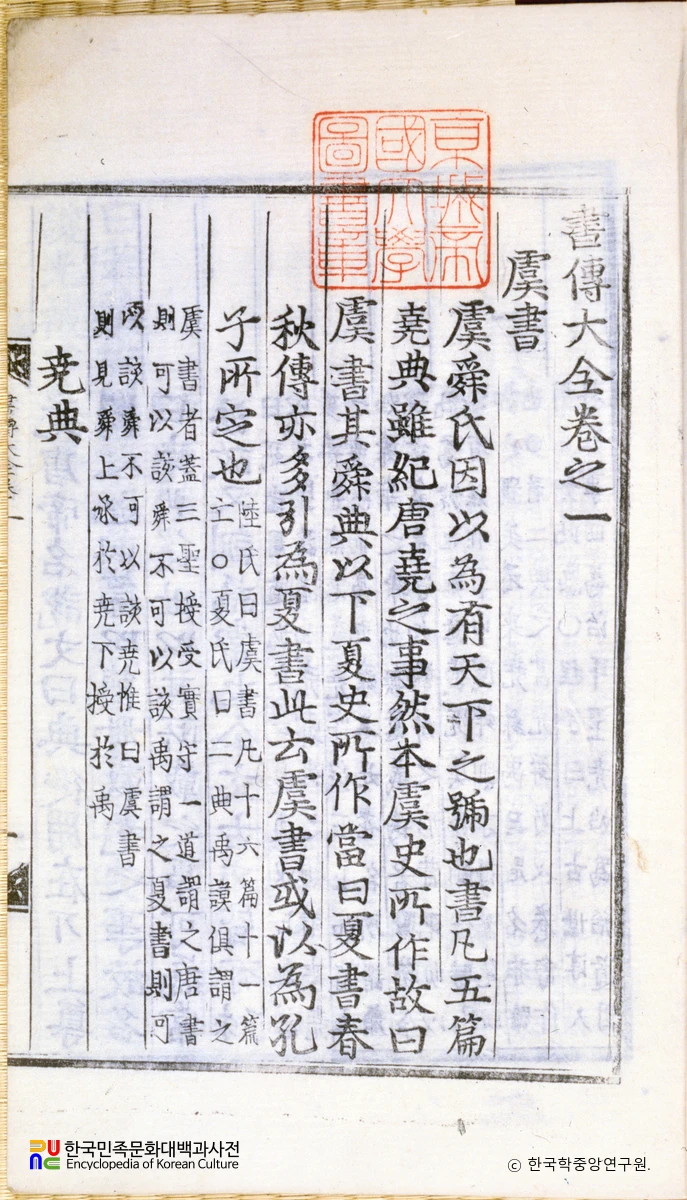 書傳大全卷之一
虞書
虞舜氏因以為有天下之號也書凡五篇
堯典雖紀唐堯之事然本虞史所作故曰
虞書其舜典以下夏史所作當曰夏書春
秋傳亦多引為夏書此云虞書或以為孔
子所定也
陸氏曰虞書凡十六篇十一篇
亡○夏氏曰二典禹謨俱謂之
虞書者蓋三聖授受實守一道謂之唐書
則可以該舜不可以該禹謂之夏書則可
以該舜不可以該堯惟曰虞書
則見舜上承於堯下授於禹
堯典
京城帝
國大學
圖書章
한국민족문화대백과사전
Encyclopedia of Korean Culture
© 한국학중앙연구원.